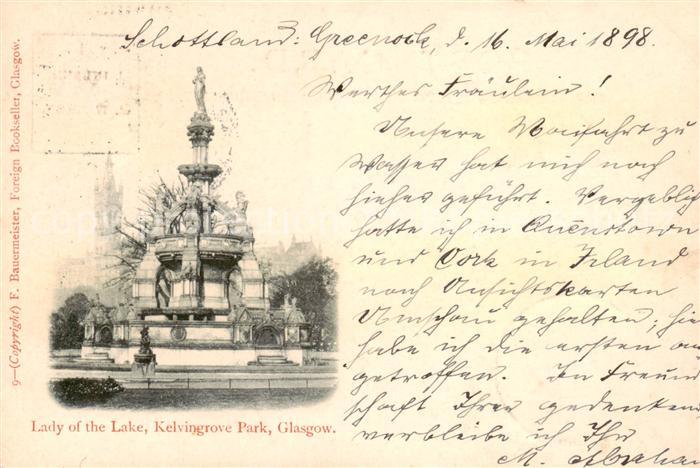 Schottland: Greenock, d. 16. Mai 1898.
Werthes Fräulein!
Unsere Maifahrt zu
Wasser hat mich nach
hieher geführt. Vergeblich
hatte ich in Queenstown
und Cork in Irland
nach Ansichtskarten
Umschau gehalten; hie
habe ich die ersten an
getroffen. In Freund
schaft Ihrer gedenken
verbleibe ich Ihr
M.
9—(Copyright) F. Bauermeister, Foreign Bookseller, Glasgow.
Lady of the Lake, Kelvingrove Park, Glasgow.